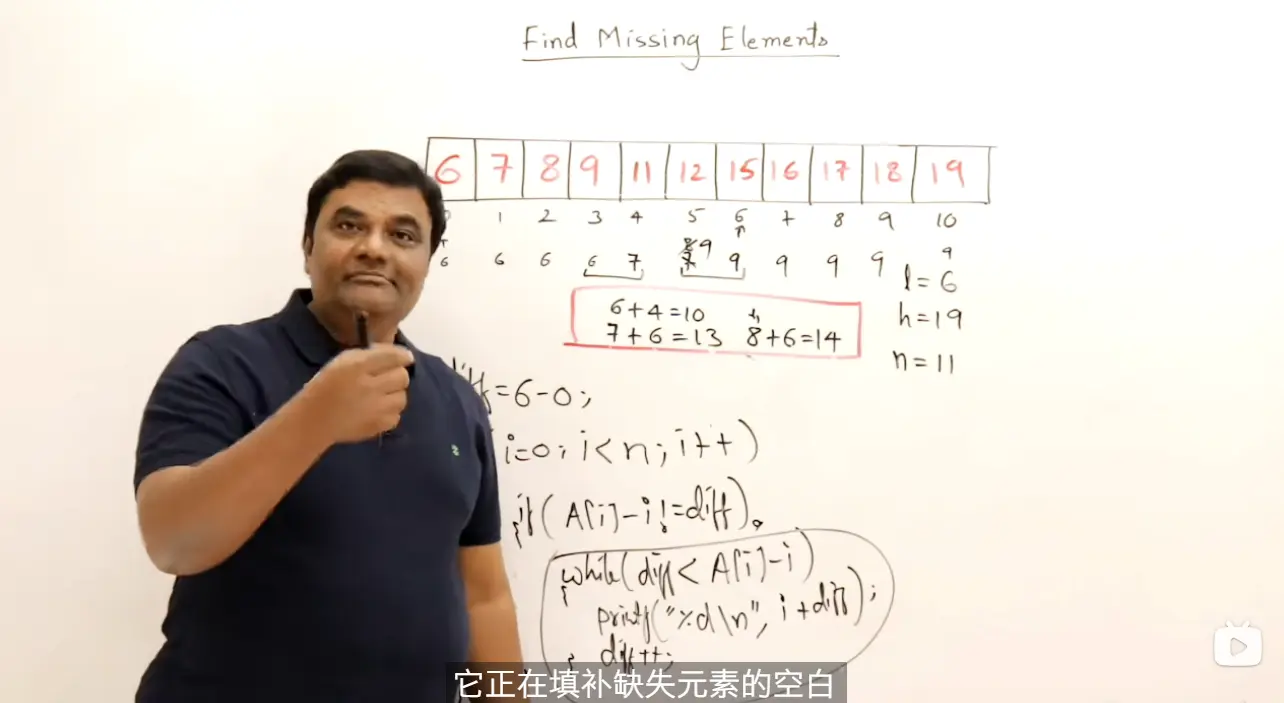 Find Missing Elements
6 7 8 9 11 12 15 16 17 18 19
1 2 3 4 5 6 7 8 9 10
6 6 6 6 7 9 9 9 9 9 9
l=6
h=19
n=11
6+4=10
7+6=13 8+6=14
diff=6-0;
i=0; i<n; i++)
if(A[i]-i!=diff)
{
while(diff<A[i]-i)
{
printf("%d\n", i+diff);
diff++;
}
它正在填补缺失元素的空白